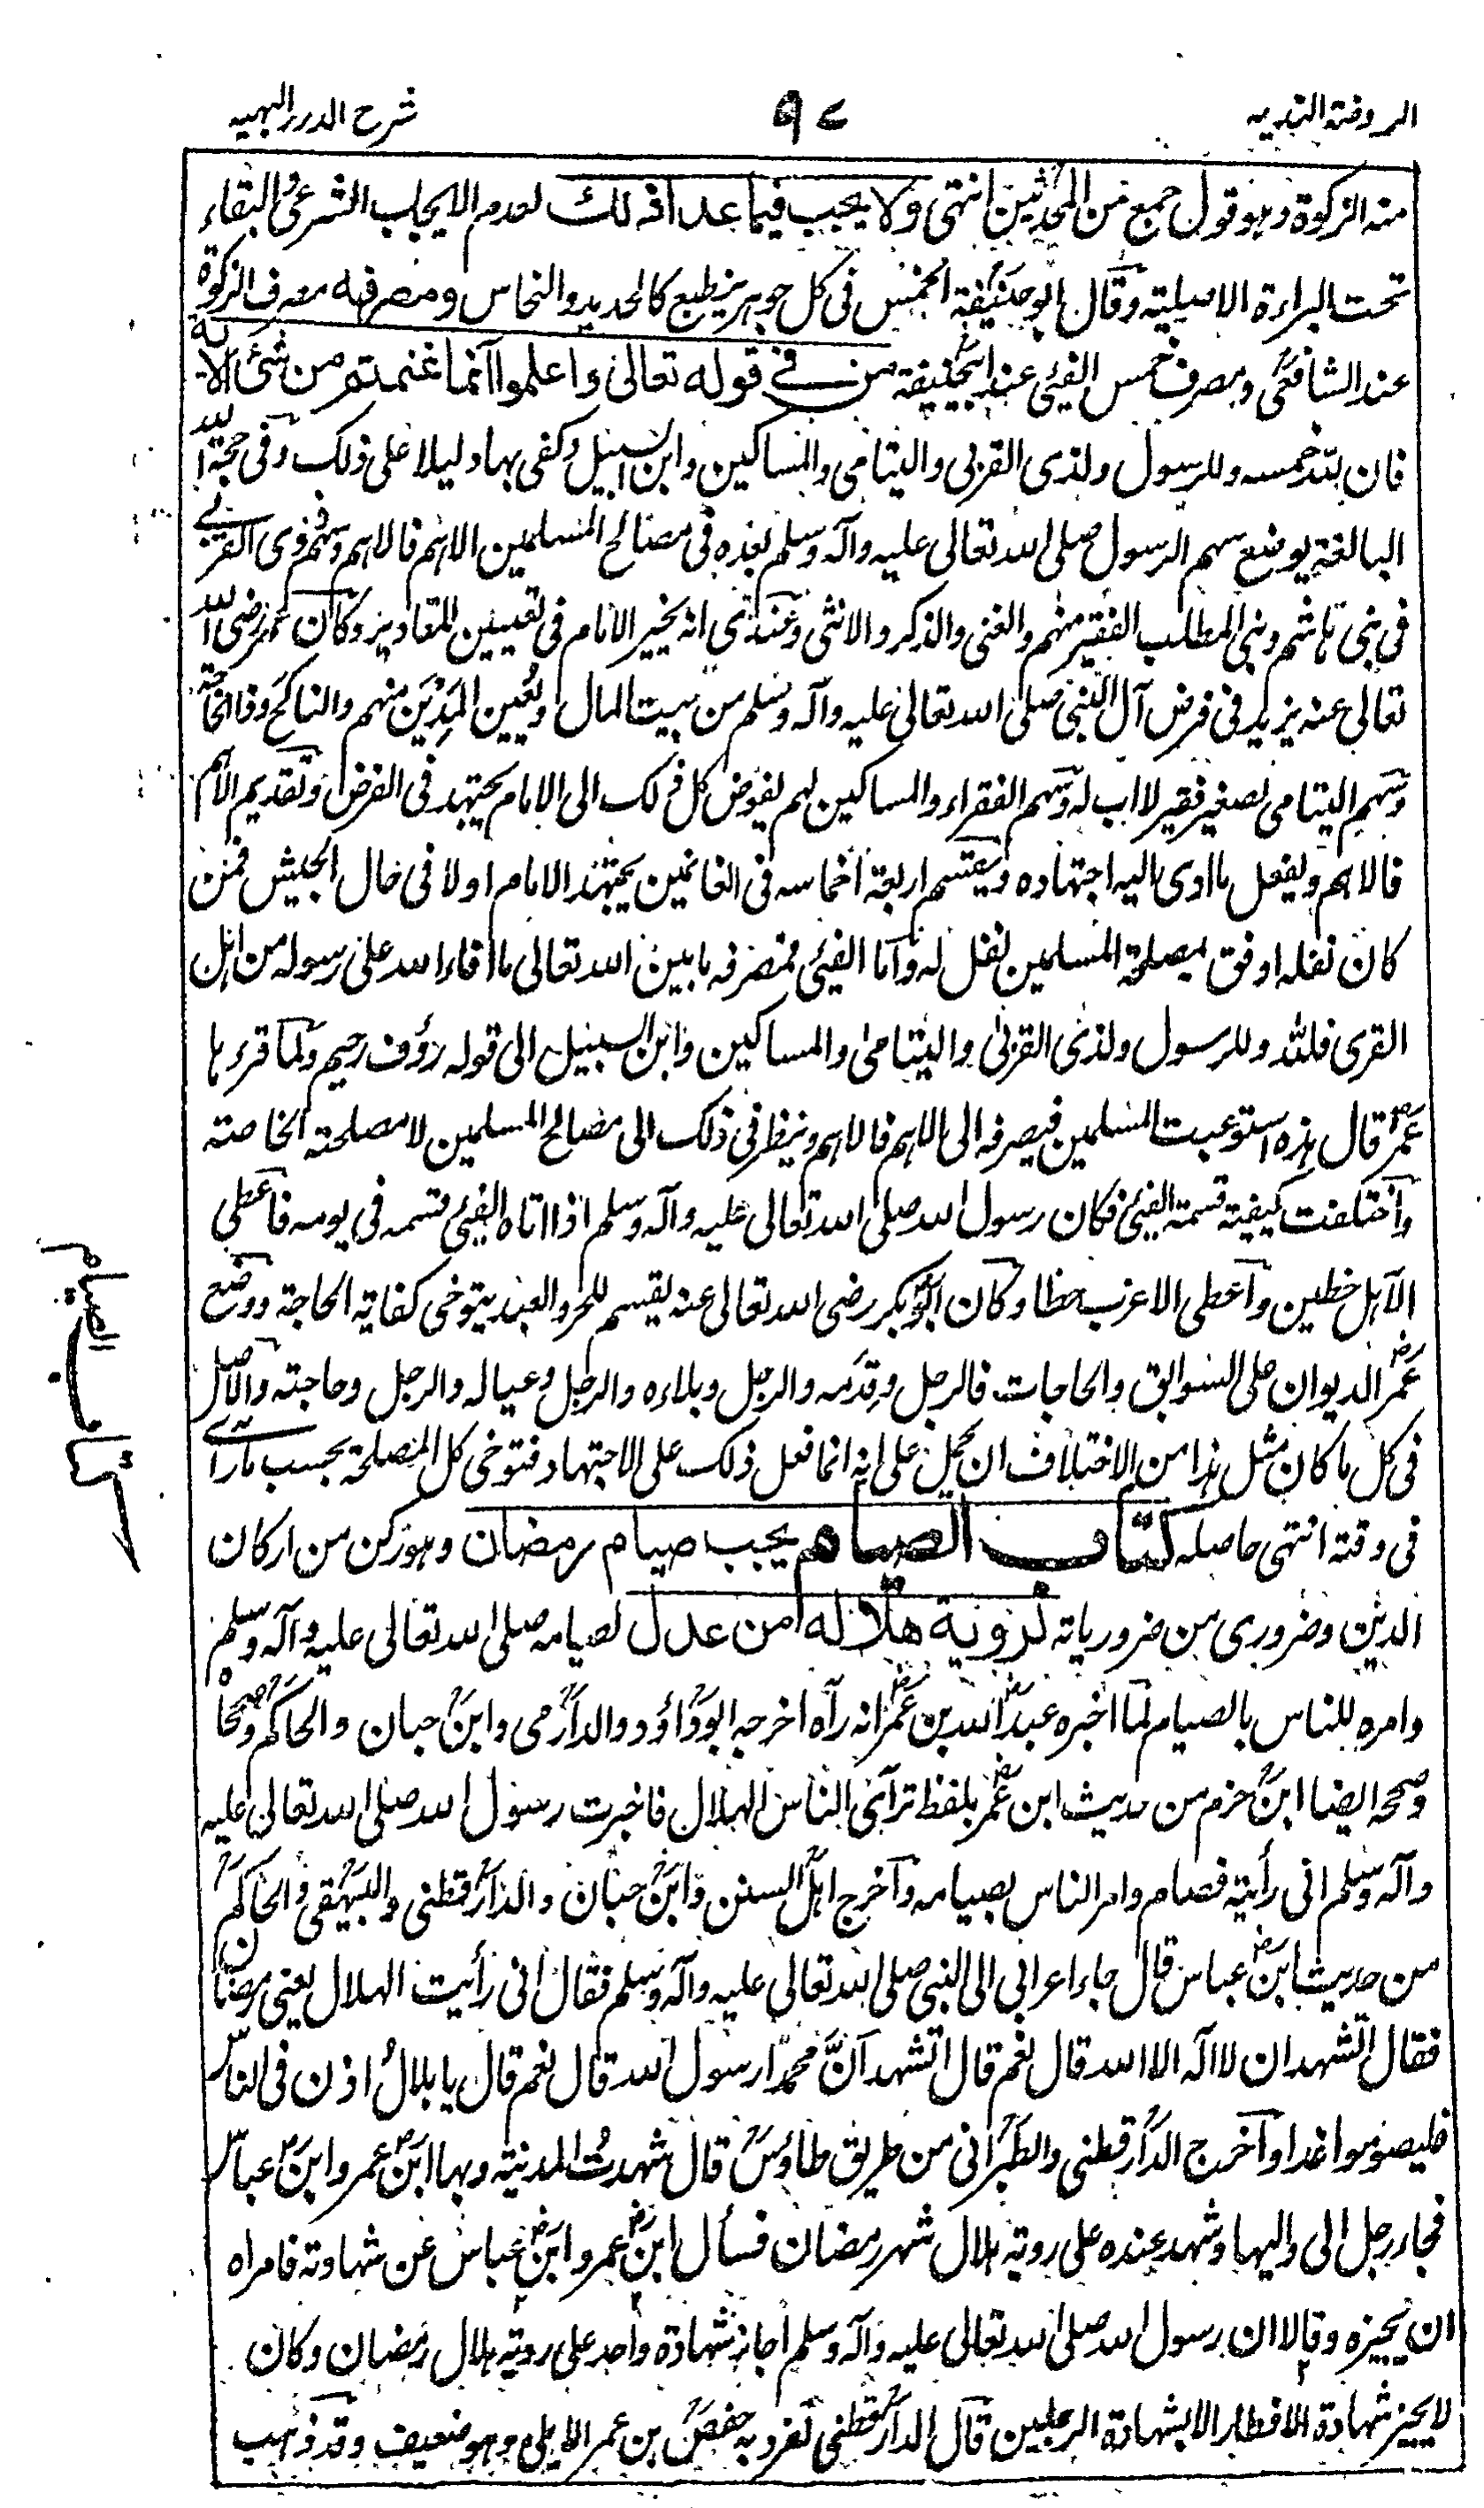 الروضة الندية
٩٧
شرح الدرر البهيه
منه الزكوة وهو قول جمع من المحدثين انتهى ولا يجب فيما عدا ذلك لعدم الايجاب الشرعي والبقاء
تحت البراءة الاصلية وقال ابو حنيفة الخمس في كل جوهر ينطبع كالحديد والنحاس ومصرفه مصرف الزكوة
عند الشافعي ومصرف خمس الفيئ عند ابيحنيفة من في قوله تعالى واعلموا آنما غنمتم من شئ الآية
فان لله خمسه وللرسول ولذى القربى واليتامى والمساكين وابن السبيل وكفى بها دليلا على ذلك وفي حجة الله
البالغة يوضع سهم الرسول صلى الله تعالى عليه وآله وسلم بعده في مصالح المسلمين الاهم فالاهم وسهم ذوى القربى
في بنى هاشم وبنى المطلب الفقير منهم والغنى والذكر والانثى وعندي انه يخير الامام في تعيين المقادير وكان عمر رضى الله
تعالى عنه يزيد في فرض آل النبى صلى الله تعالى عليه وآله وسلم من بيت المال ويعين المدين منهم والناكح وذا الحاجة
وسهم اليتامى لصغير فقير لا اب له وسهم الفقراء والمساكين لهم يفوض كل ذلك الى الامام يجتهد في الفرض وتقديم الاهم
فالاهم ويفعل ما ادى اليه اجتهاده ويقتسم اربعة اخماسه في الغانمين يجتهد الامام اولا في حال الجيش فمن
كان نفله اوفق بمصلحة المسلمين نفل له وآما الفيئ فمصرفه ما بين الله تعالى ما افاء الله على رسوله من اهل
القرى فلله وللرسول ولذى القربى واليتامى والمساكين وابن السبيل الى قوله رؤف رحيم ولما قرءها
عمر قال هذه استوعبت المسلمين فيصرفه الى الاهم فالاهم وينظر في ذلك الى مصالح المسلمين لا مصلحته الخاصته
وآختلفت كيفية قسمة الفيئ فكان رسول الله صلى الله تعالى عليه وآله وسلم اذا اتاه الفيئ قسمه في يومه فاعطى
الآهل حظين وآعطى الاعزب حظا وكان ابو بكر رضى الله تعالى عنه يقسم للحر والعبد يتوخى كفاية الحاجة ووضع
عمر الديوان على السوابق والحاجات فالرجل وقدمه والرجل وبلاءه والرجل وعياله والرجل وحاجته والاصل
في كل ما كان مثل هذا من الاختلاف ان يحمل على انه انما فعل ذلك على الاجتهاد فتوخى كل المصلحة بحسب ما رآى
في وقته انتهى حاصله كتاب الصيام يجب صيام رمضان وهو ركن من اركان
كتاب الصيام
الدين وضرورى من ضرورياته لرؤية هلاله من عدل لصيامه صلى الله تعالى عليه وآله وسلم
وامره للناس بالصيام لما اخبره عبد الله بن عمر انه رآه اخرجه ابو داؤد والدارمى وابن حبان والحاكم وصححاه
وصححه ايضا ابن حزم من حديث ابن عمر بلفظ ترآئى الناس الهلال فاخبرت رسول الله صلى الله تعالى عليه
وآله وسلم انى رأيته فصام وامر الناس بصيامه وآخرج اهل السنن وابن حبان والدارقطنى والبيهقى والحاكم
من حديث ابن عباس قال جاء اعرابى الى النبى صلى الله تعالى عليه وآله وسلم فقال انى رأيت الهلال يعنى رمضان
فقال اتشهد ان لا اله الا الله قال نعم قال اتشهد آنّ محمدا رسول الله قال نعم قال يا بلالُ اذن في الناس
فليصوموا غدا وآخرج الدارقطنى والطبرانى من طريق طاؤس قال شهدتُ المدينة وبها ابن عمر وابن عباس
فجاء رجل الى واليها وشهد عنده على روية هلال شهر رمضان فسأل ابن عمر وابن عباس عن شهادته فامراه
ان يجيزه وقالا ان رسول الله صلى الله تعالى عليه وآله وسلم اجاز شهادة واحد على روية هلال رمضان وكان
لا يجيز شهادة الافطار الا بشهادة الرجلين قال الدارقطنى تفرد به حفص بن عمر الايلى وهو ضعيف وقد ذهب